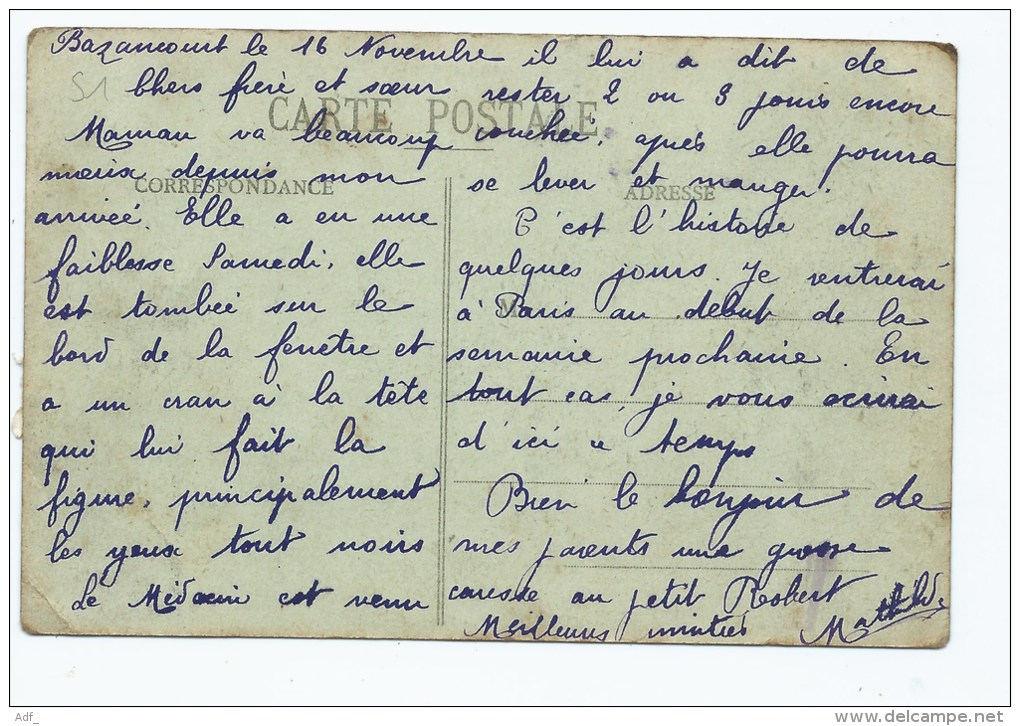 Bazancourt le 16 Novembre
51
Chers frère et sœur
CARTE POSTALE
Maman va beaucoup
CORRESPONDANCE
mieux depuis mon
arrivée. Elle a eu une
faiblesse Samedi, elle
est tombée sur le
bord de la fenêtre et
a un cran à la tête
qui lui fait la
figure, principalement
les yeux tout noirs
Le Médecin est venu
il lui a dit de
rester 2 ou 3 jours encore
couchée, après elle pourra
se lever et manger.
ADRESSE
C'est l'histoire de
quelques jours. Je rentrerai
à Paris au début de la
semaine prochaine. En
tout cas, je vous écrirai
d'ici ce temps
Bien le bonjour de
mes parents une grosse
caresse au petit Robert
Meilleurs amitiés Mathilde
Adf_
www.delcampe.net